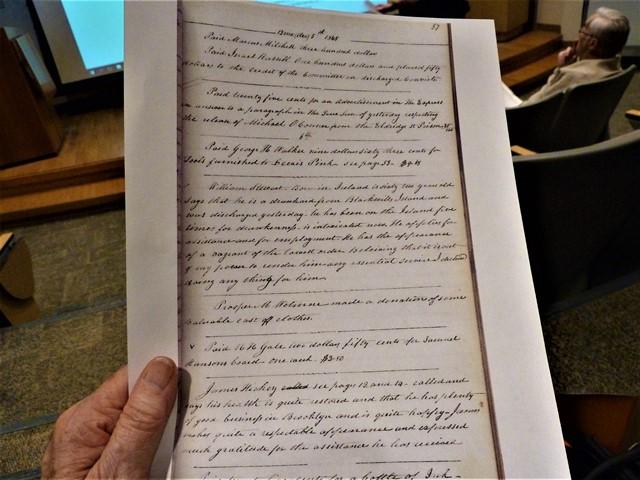 37
5th 1868
Paid Marcus Mitchell three hundred dollars
Paid Israel Russell One hundred dollars and placed fifty
dollars to the credit of the Committee on discharged Convicts
Paid twenty five cents for an advertisement in the Express
in answer to a paragraph in the Sun of yesterday respecting
the release of Michael O'Connor from the Eldridge St Prison
6th
Paid George H Walker nine dollars sixty three cents for
tools furnished to Pink see page 33
William Stewart. Born in Ireland is sixty two years old
says that he is a drunkard from Blackwells Island and
was discharged yesterday. he has been on the Island five
times for drunkenness, is intoxicated now. He applies for
assistance and for employment. He has the appearance
of a vagrant of the lowest order Believing that it is out
of my power to render him any essential service I declined
doing any thing for him.
Prosper M. made a donation of some
valuable cast off clothes.
Paid H H Gale two dollars fifty cents for Samuel
Hansons board one week
James Hickey called see page 12 and 14 - called and
says his health is quite restored and that he has plenty
of good business in Brooklyn and is quite happy - James
makes quite a respectable appearance and expressed
much gratitude for the assistance he has received
cents for a bottle of Ink